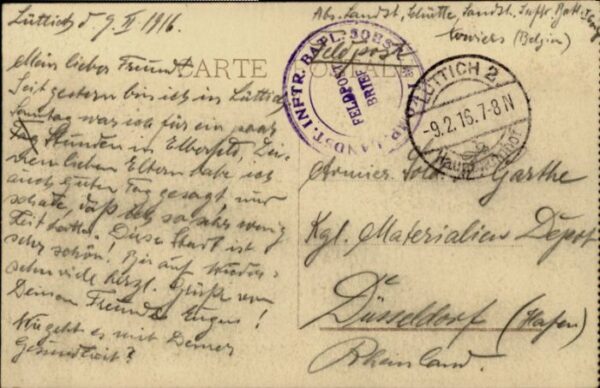 Lüttich d. 9. II 1916.
Mein lieber Freund!
Seit gestern bin ich in Lüttich.
Sonntag war ich für ein paar
Stunden in Elberfeld, Dei-
nen lieben Eltern habe ich
auch guten Tag gesagt, nur
schade, daß ich so sehr wenig
Zeit hatte. Diese Stadt ist
sehr schön! Bis auf Wieder-
sehn viele herzl. Grüße von
Deinem Freunde Eugen!
Wie geht es mit Deiner
Gesundheit?
CARTE POSTALE
Abs. Landst. Schütte, Landst. Inftr. Batl.
(Belgien)
Feldpost
LANDST. INFTR. BATL.
FELDPOST
BRIEF
LÜTTICH 2
-9.2.16.7-8N
Hauptbahnhof
Armier. Sold. Garthe
Kgl. Materialien Depot
Düsseldorf (Hafen)
Rheinland.